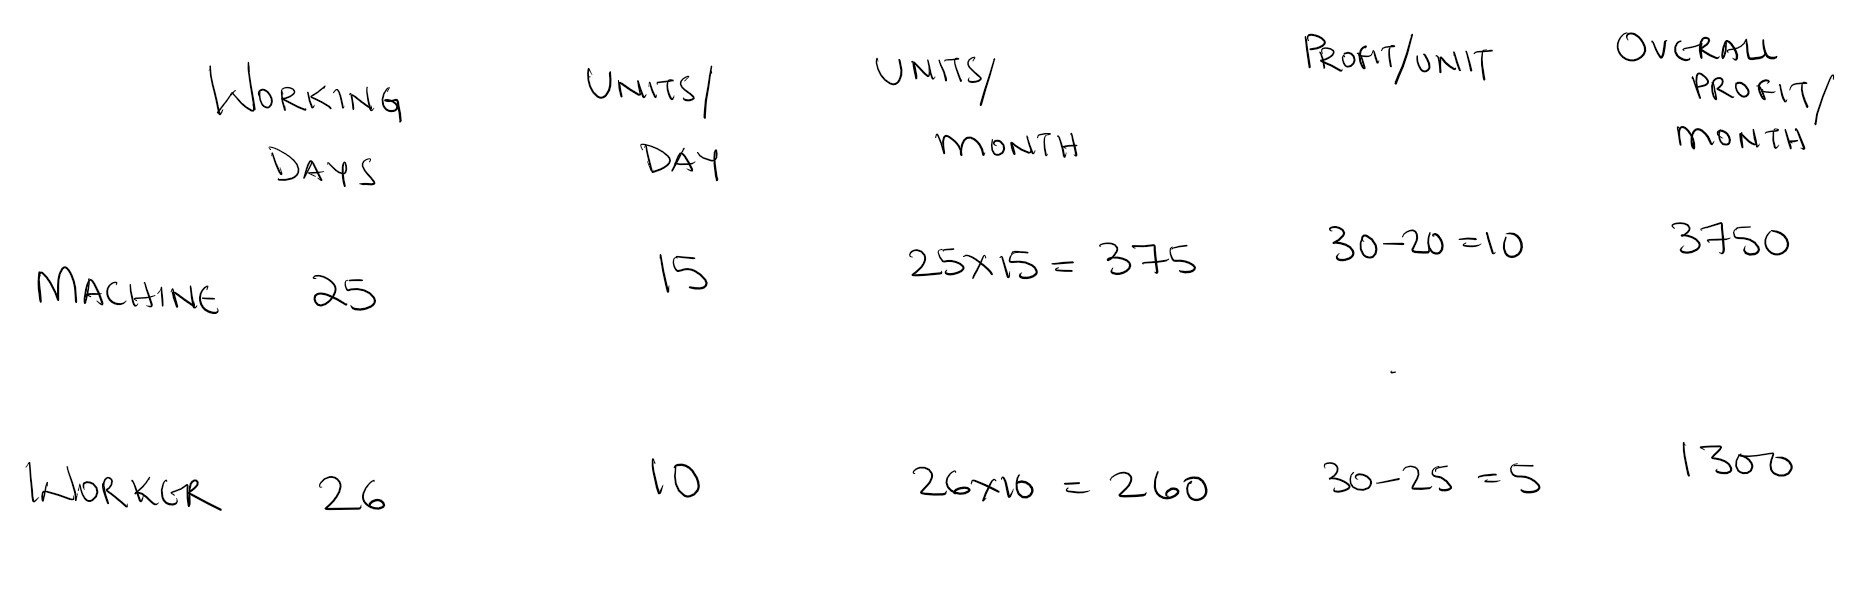 WORKING DAYS UNITS/ DAY UNITS/ MONTH PROFIT/UNIT OVERALL PROFIT/ MONTH
MACHINE 25 15 25×15 = 375 30-20=10 3750
WORKER 26 10 26×10 = 260 30-25=5 1300